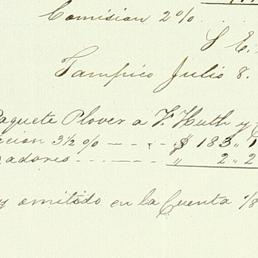 Comision 2%
S. E.
Tampico Julio 8.
Paquete Plover a F. Huth y C
cion 3½ % $ 183,, 1
adores " 2 " 2
y omitido en la Cuenta